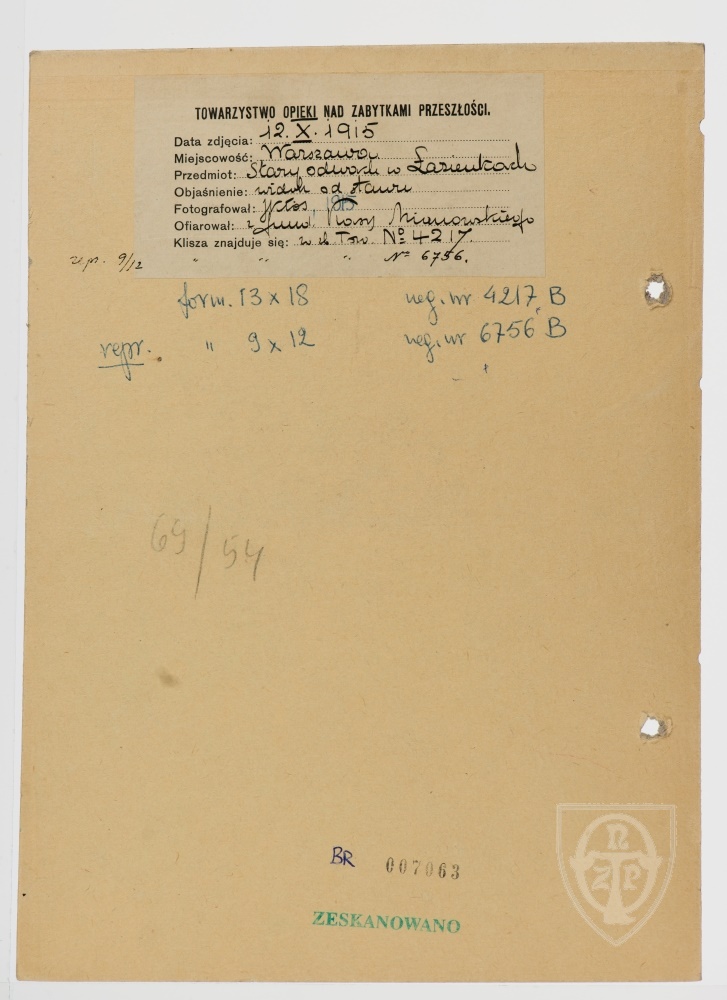 TOWARZYSTWO OPIEKI NAD ZABYTKAMI PRZESZŁOŚCI.
Data zdjęcia: 12. X. 1915
Miejscowość: Warszawa
Przedmiot: Stary odwach w Łazienkach
Objaśnienie: widok od stawu
Fotografował: J Kłos, 1915
Ofiarował: z fund. Kasy Mianowskiego
Klisza znajduje się: w zb. Tow. Nº 4217.
repr. 9/12 " " " Nº 6756.
form. 13 x 18 neg. nr 4217 B
repr. " 9 x 12 neg. nr 6756 B
69/54
BR 007063
ZESKANOWANO
TONZP